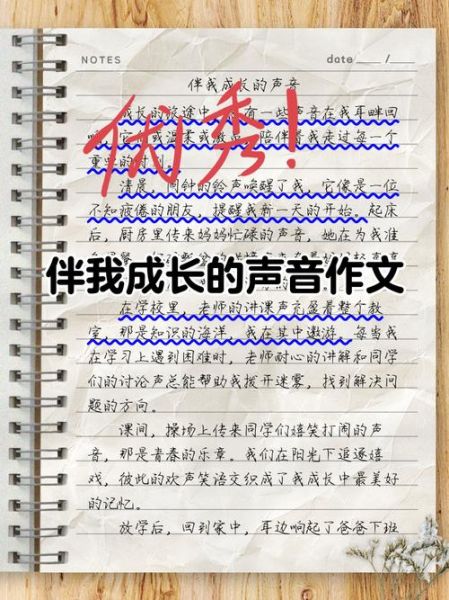 NOTES date /
伴我成长的声音
成长的旅途中，有一些声音在我耳畔回
温柔或激，陪伴着我走过每一个
重要的时刻。
清晨，闹钟的铃声唤醒了我，它像是一位
不知疲倦的朋友，提醒我新一天的开始。起床
后，厨房里传来妈妈忙碌的声音，她在为我准
伴我成长的声音作文
在学校里，老师的讲课声充盈着整个教
室，那是知识的海洋，我在其中遨游。每当我
在学习上遇到困难时，老师耐心的讲解和同学
们的讨论声总能帮助我拨开迷雾，找到解决问
题的方向。
课间，操场上传来同学们嬉笑打闹的声
音，那是青春的乐章。我们在阳光下追逐嬉
戏，彼此的欢声笑语交织成了我成长中最美好
的记忆。
放学后，回到家中，耳边响起了爸爸下班
优秀！